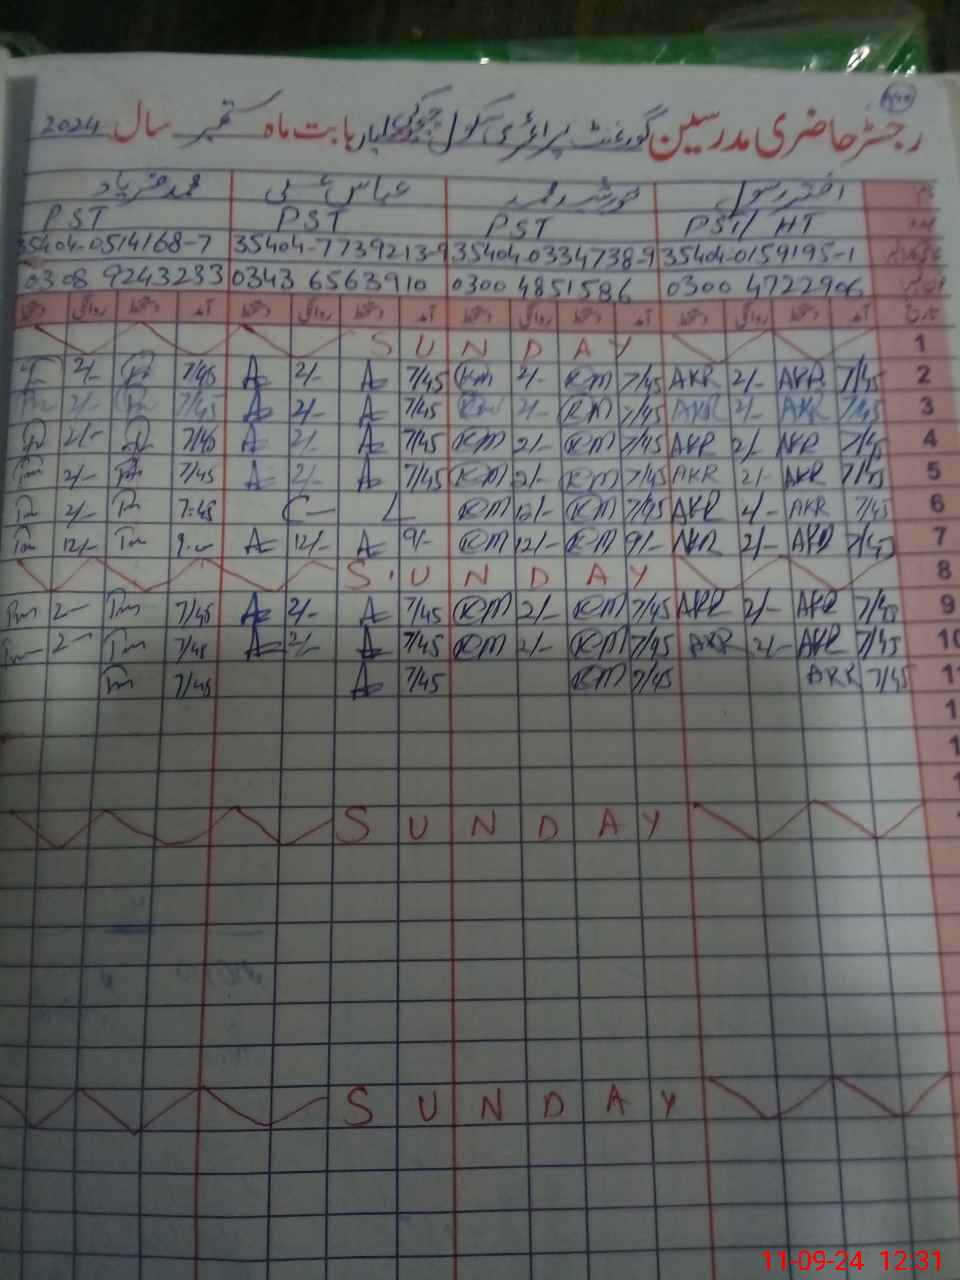 رجسٹر حاضری مدرسین گورنمنٹ پرائمری سکول چوکی بابت ماہ ستمبر سال 2024
اختر رسول خورشید محمد عباس علی محمد فریاد
PST/HT PST PST PST
35404-0159195-1 35404-0334738-9 35404-7739213-9 35404-0514168-7
0300 4722906 0300 4851586 0343 6563910 0308 9243233
تاریخ آمد دستخط روانگی دستخط آمد دستخط روانگی دستخط آمد دستخط روانگی دستخط آمد دستخط روانگی دستخط
1 SUNDAY
2 7/45 AKR 2/- AKR 7/45 KM 2/- KM 7/45 A 2/- A 7/45 2/-
3 7/45 AKR 2/- AKR 7/45 KM 2/- KM 7/45 A 2/- A 7/45 2/-
4 7/45 AKR 2/- AKR 7/45 KM 2/- KM 7/45 A 2/- A 7/45 2/-
5 7/45 AKR 2/- AKR 7/45 KM 2/- KM 7/45 A 2/- A 7/45 2/-
6 7/45 AKR AKR 7/45 KM 12/- KM L C 7:45 2/-
7 7/45 AKR 2/- AKR 9/- KM 12/- KM 9/- A 12/- A 12/-
8 SUNDAY
9 7/45 AKR 2/- AKR 7/45 KM 2/- KM 7/45 A 2/- A 7/45 2-
10 7/45 AKR 2/- AKR 7/45 KM 2/- KM 7/45 A 2/- A 7/45 2-
11 7/45 AKR 7/45 KM 7/45 A 7/45
SUNDAY
SUNDAY
11-09-24 12:31